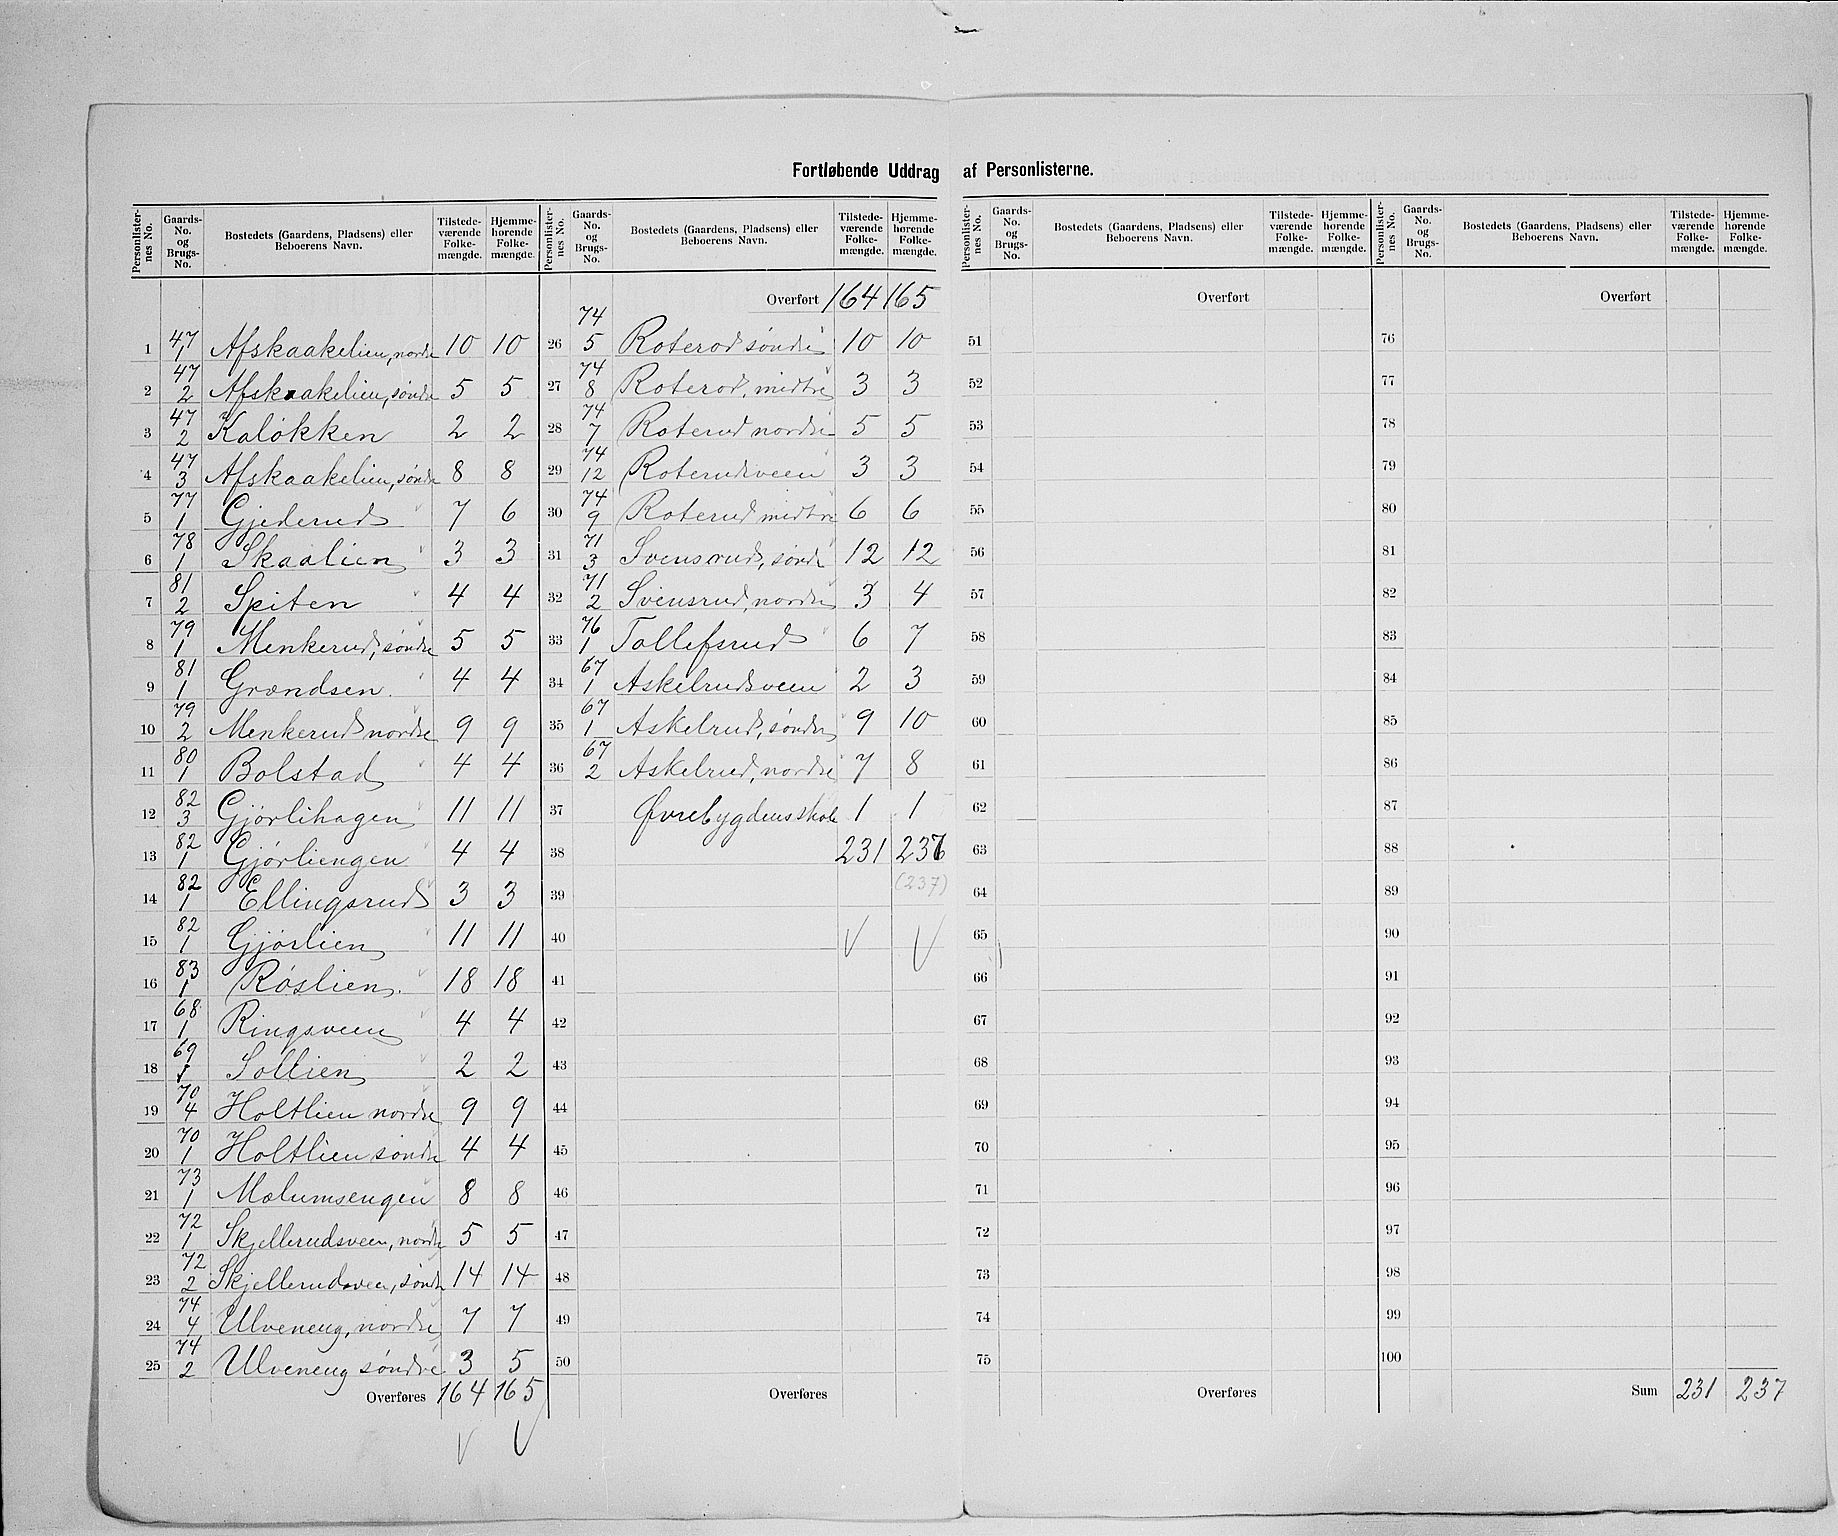 Fortløbende Uddrag af Personlisterne.
Personlister-nes No. | Gaards-No. og Brugs-No. | Bostedets (Gaardens, Pladsens) eller Beboerens Navn. | Tilstede-værende Folke-mængde. | Hjemme-hørende Folke-mængde.
1 47/1 Afskaakelien, nordre 10 10
2 47/2 Afskaakelien, søndre 5 5
3 47/2 Kaløkken 2 2
4 47/3 Afskaakelien, søndre 8 8
5 77/1 Gjederud 7 6
6 78/1 Skaalien 3 3
7 81/2 Spiten 4 4
8 79/1 Menkerud, søndre 5 5
9 81/1 Grændsen. 4 4
10 79/2 Menkerud nordre 9 9
11 80/1 Bolstad 4 4
12 82/3 Gjørlihagen 11 11
13 82/1 Gjørliengen 4 4
14 82/1 Ellingsrud 3 3
15 82/1 Gjørlien 11 11
16 83/1 Røslien. 18 18
17 68/1 Ringsveen 4 4
18 69/1 Sollien 2 2
19 70/4 Holtlien nordre 9 9
20 70/1 Holtlien søndre 4 4
21 73/1 Mælumsengen 8 8
22 72/1 Skjellerudsveen, nordre 5 5
23 72/2 Skjellerudsveen, søndre 14 14
24 74/4 Ulveneng, nordre 7 7
25 74/2 Ulveneng søndre 3 5
Overføres 164 165
Personlister-nes No. | Gaards-No. og Brugs-No. | Bostedets (Gaardens, Pladsens) eller Beboerens Navn. | Tilstede-værende Folke-mængde. | Hjemme-hørende Folke-mængde.
Overført 164 165
26 74/5 Roterod søndre 10 10
27 74/8 Roterod, midtre 3 3
28 74/7 Roterud nordre 5 5
29 74/12 Roterudsveen 3 3
30 74/9 Roterud midtre 6 6
31 71/3 Svensrud, søndre 12 12
32 71/2 Svensrud, nordre 3 4
33 76/1 Tollefsrud 6 7
34 67/1 Askelrudsveen 2 3
35 67/1 Askelrud, søndre 9 10
36 67/2 Askelrud, nordre 7 8
37 Øvrebygdens skole 1 1
38 231 237
39 (237)
40
41
42
43
44
45
46
47
48
49
50
Overføres
Personlister-nes No. | Gaards-No. og Brugs-No. | Bostedets (Gaardens, Pladsens) eller Beboerens Navn. | Tilstede-værende Folke-mængde. | Hjemme-hørende Folke-mængde.
Overført
51
52
53
54
55
56
57
58
59
60
61
62
63
64
65
66
67
68
69
70
71
72
73
74
75
Overføres
Personlister-nes No. | Gaards-No. og Brugs-No. | Bostedets (Gaardens, Pladsens) eller Beboerens Navn. | Tilstede-værende Folke-mængde. | Hjemme-hørende Folke-mængde.
Overført
76
77
78
79
80
81
82
83
84
85
86
87
88
89
90
91
92
93
94
95
96
97
98
99
100
Sum 231 237